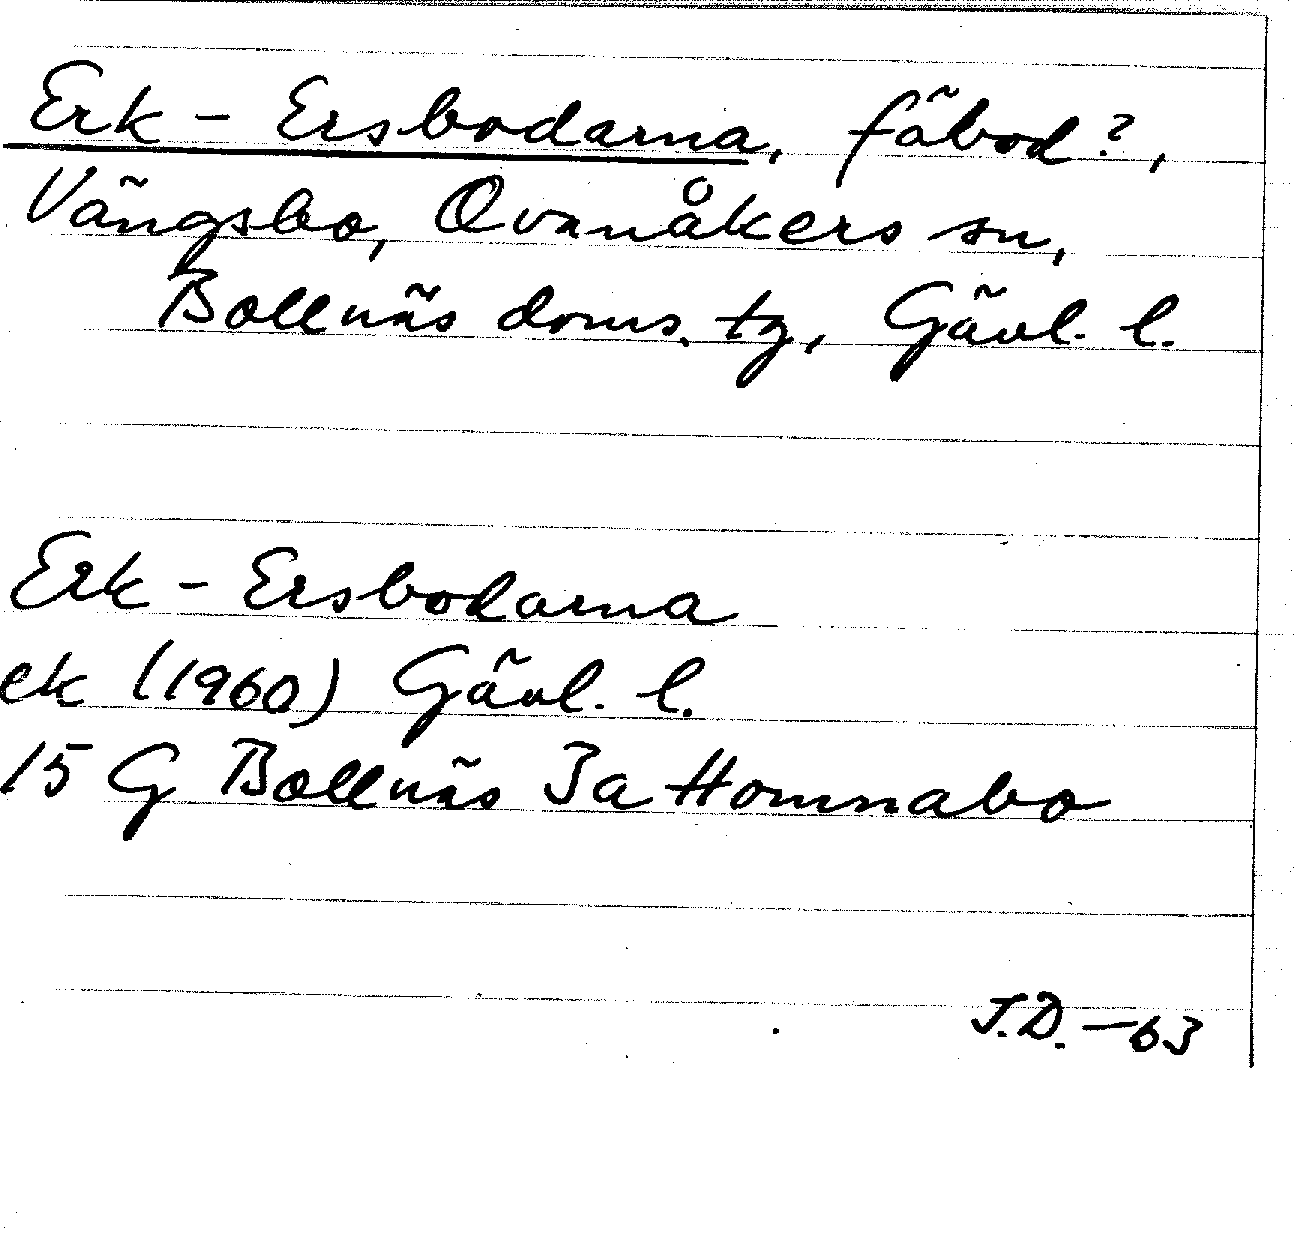 Erk - Ersbodarna, fäbod?,
Vängsbo, Ovanåkers sn,
Bollnäs doms. tg, Gävl. l.
Erk - Ersbodarna
ek (1960) Gävl. l.
15 G Bollnäs 3a Homnabo
J.D. - 63